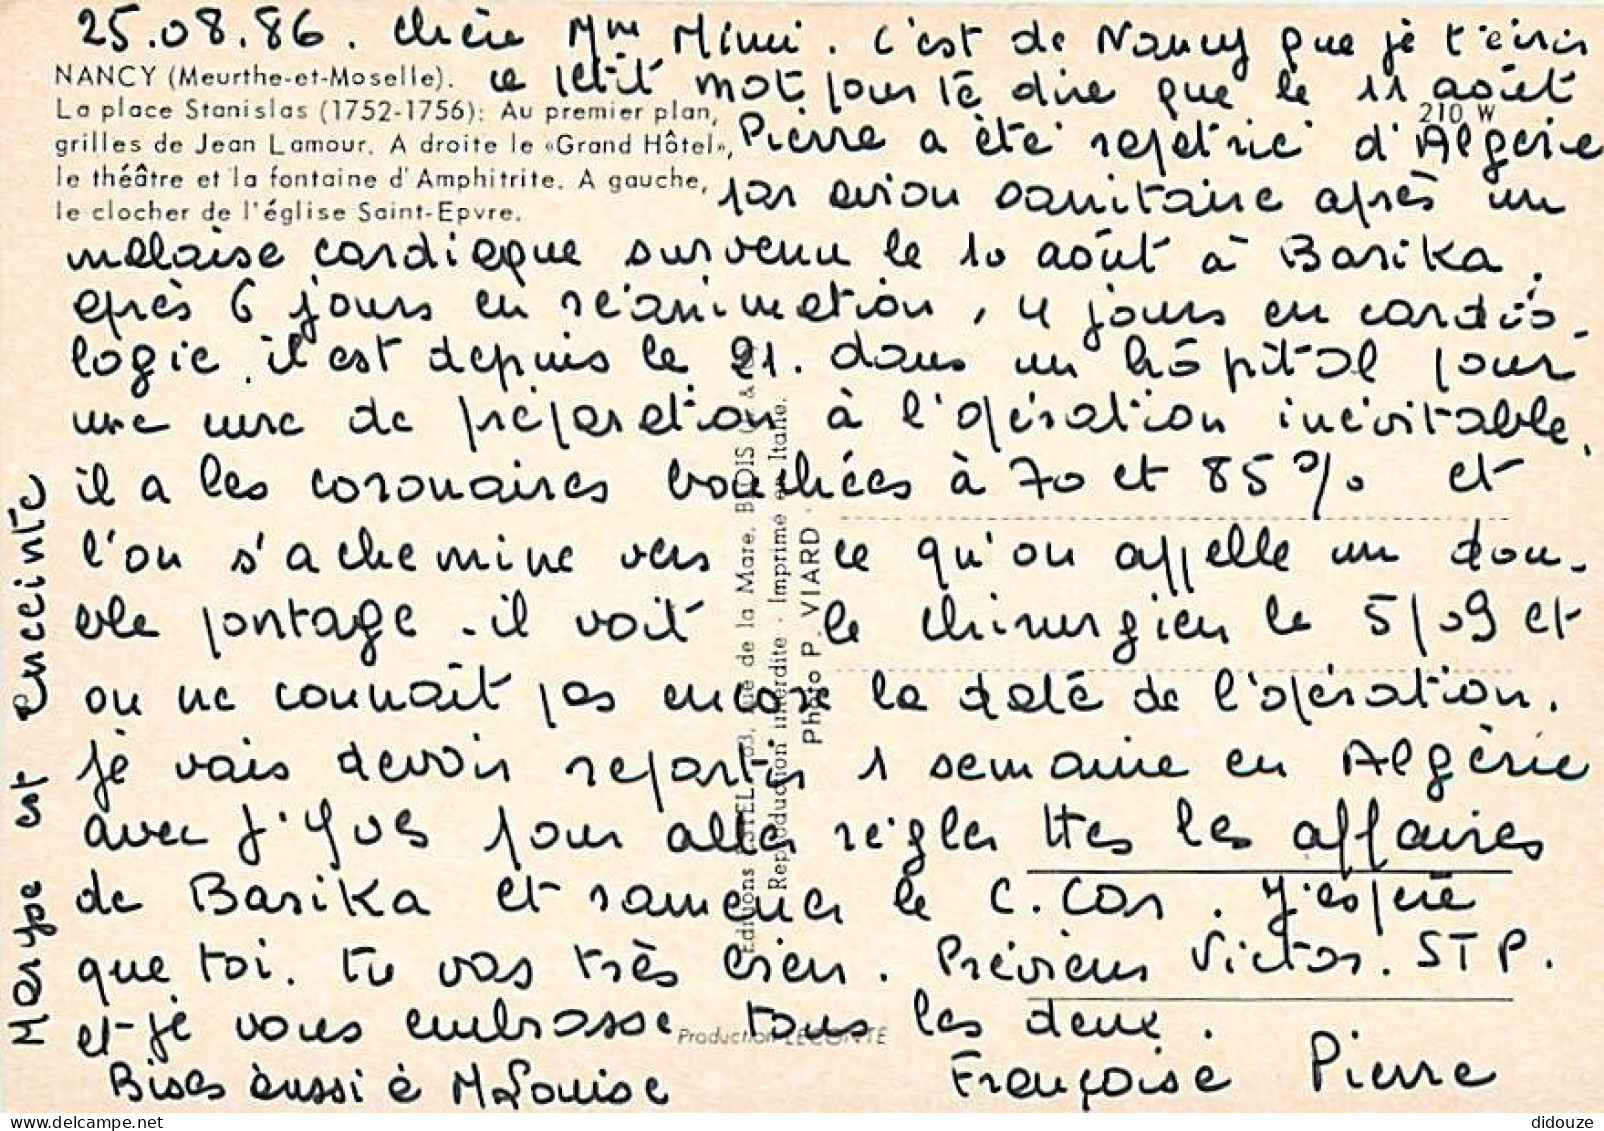 25.08.86. Chère Mme Mimi. C'est de Nancy que je t'écris
NANCY (Meurthe-et-Moselle). ce petit mot pour te dire que le 11 août
La place Stanislas (1752-1756): Au premier plan, 210 W
grilles de Jean Lamour. A droite le «Grand Hôtel», Pierre a été rapatrié d'Algérie
le théâtre et la fontaine d'Amphitrite. A gauche, par avion sanitaire après un
le clocher de l'église Saint-Epvre.
malaise cardiaque survenu le 10 août à Barika.
après 6 jours en réanimation, 4 jours en cardio-
logie, il est depuis le 21. dans un hôpital pour
une cure de préparation à l'opération inévitable.
il a les coronaires bouchées à 70 et 85% et
l'on s'achemine vers ce qu'on appelle un dou-
ble pontage. il voit le chirurgien le 5/09 et
on ne connaît pas encore la date de l'opération.
Je vais devoir repartir 1 semaine en Algérie
avec J. Yves pour aller régler ttes les affaires
de Barika et ramener le C. Car. J'espère
que toi. tu vas très bien. Préviens Victor. STP.
et je vous embrasse tous les deux.
Bises aussi à M Louise Françoise Pierre
Maryse est enceinte
Editions ESTEL, 63, rue de la Mare, BLOIS
Reproduction interdite - Imprimé en Italie.
Photo P. VIARD
Production LECONTE
didouze